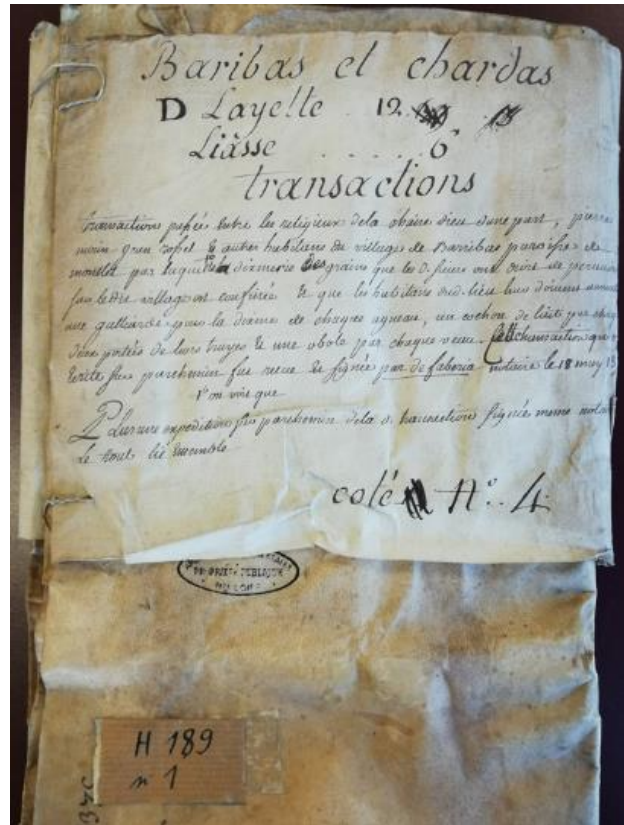 Baribas et chardas
D Layette 12. 13
Liässe ..... 6e
transactions
transaction passée entre les religieux de la chaise dieu d'une part, pierre
morin &autres habitans du village de Barribas paroisse de
monlet par laquelle la dixmerie des grains que les d. sieurs ont droit de percevoir
sur ledit village est confirée & que les habitans dud. lieu leurs doivent
une galliarde pour la dixme de chaque agneau, un cochon de lait par
portées de leurs truyes & une obole par chaque veau. Cette transaction
sur parchemin fut recue & signée par de faboria notaire le 18 may 13
Plus une expedition sur parchemin de la d. transaction signée meme
Le tout lié ensemble
coté N°. 4
PROPRIÉTÉ PUBLIQUE
H 189
n 1